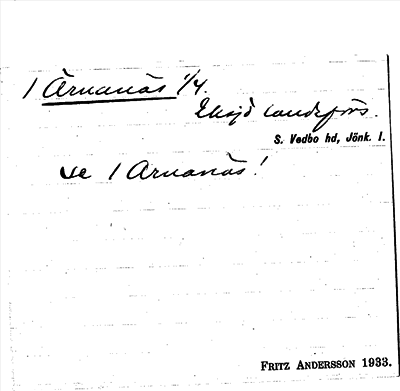 1 Ärnanäs 1/4.
Eksjö landsförs.
S. Vedbo hd, Jönk. l.
se 1 Arnanäs!
FRITZ ANDERSSON 1933.